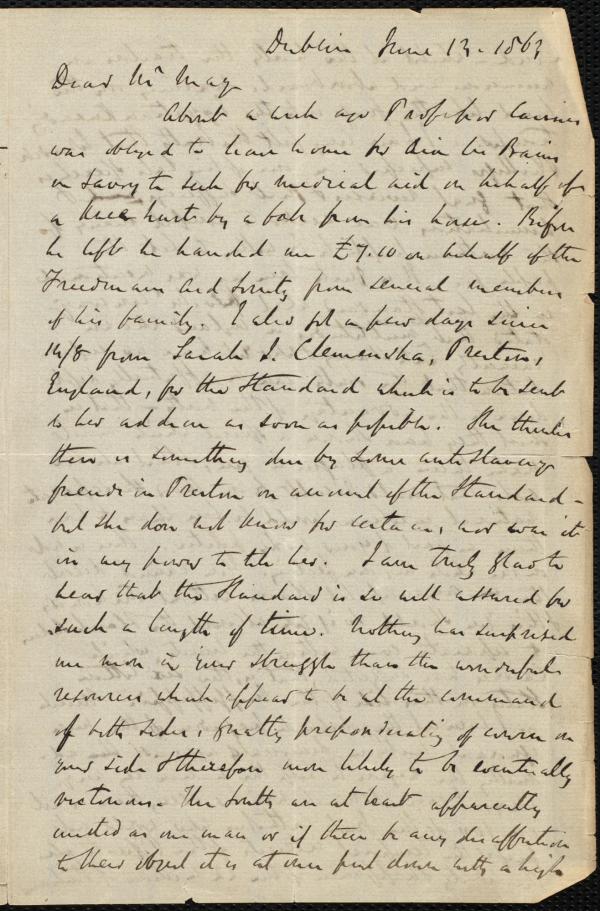 Dublin June 13. 1863
Dear Mr May
About a week ago Professor Cairnes
was obliged to leave home for Aix les Bains
in Savoy to seek for medical aid on behalf of
a knee hurt by a fall from his horse. Before
he left he handed me £7.10 on behalf of the
Freedmans Aid Society from several members
of his family. I also got a few days since
14/8 from Sarah J. Clemensha, Preston,
England, for the Standard which is to be sent
to her address as soon as possible. She thinks
there is something due by some anti slavery
friends in Preston on account of the Standard -
but she does not know for certain, nor was it
in my power to tell her. I am truly glad to
hear that the Standard is so well assured for
such a length of time. Nothing has surprised
me more in your struggle than the wonderful
resources which appear to be at the command
of both sides, greatly preponderating of course on
your side & therefore more likely to be eventually
victorious. The South are at least apparently
united as one man or if there be any disaffection
to their object it is at once put down with a high